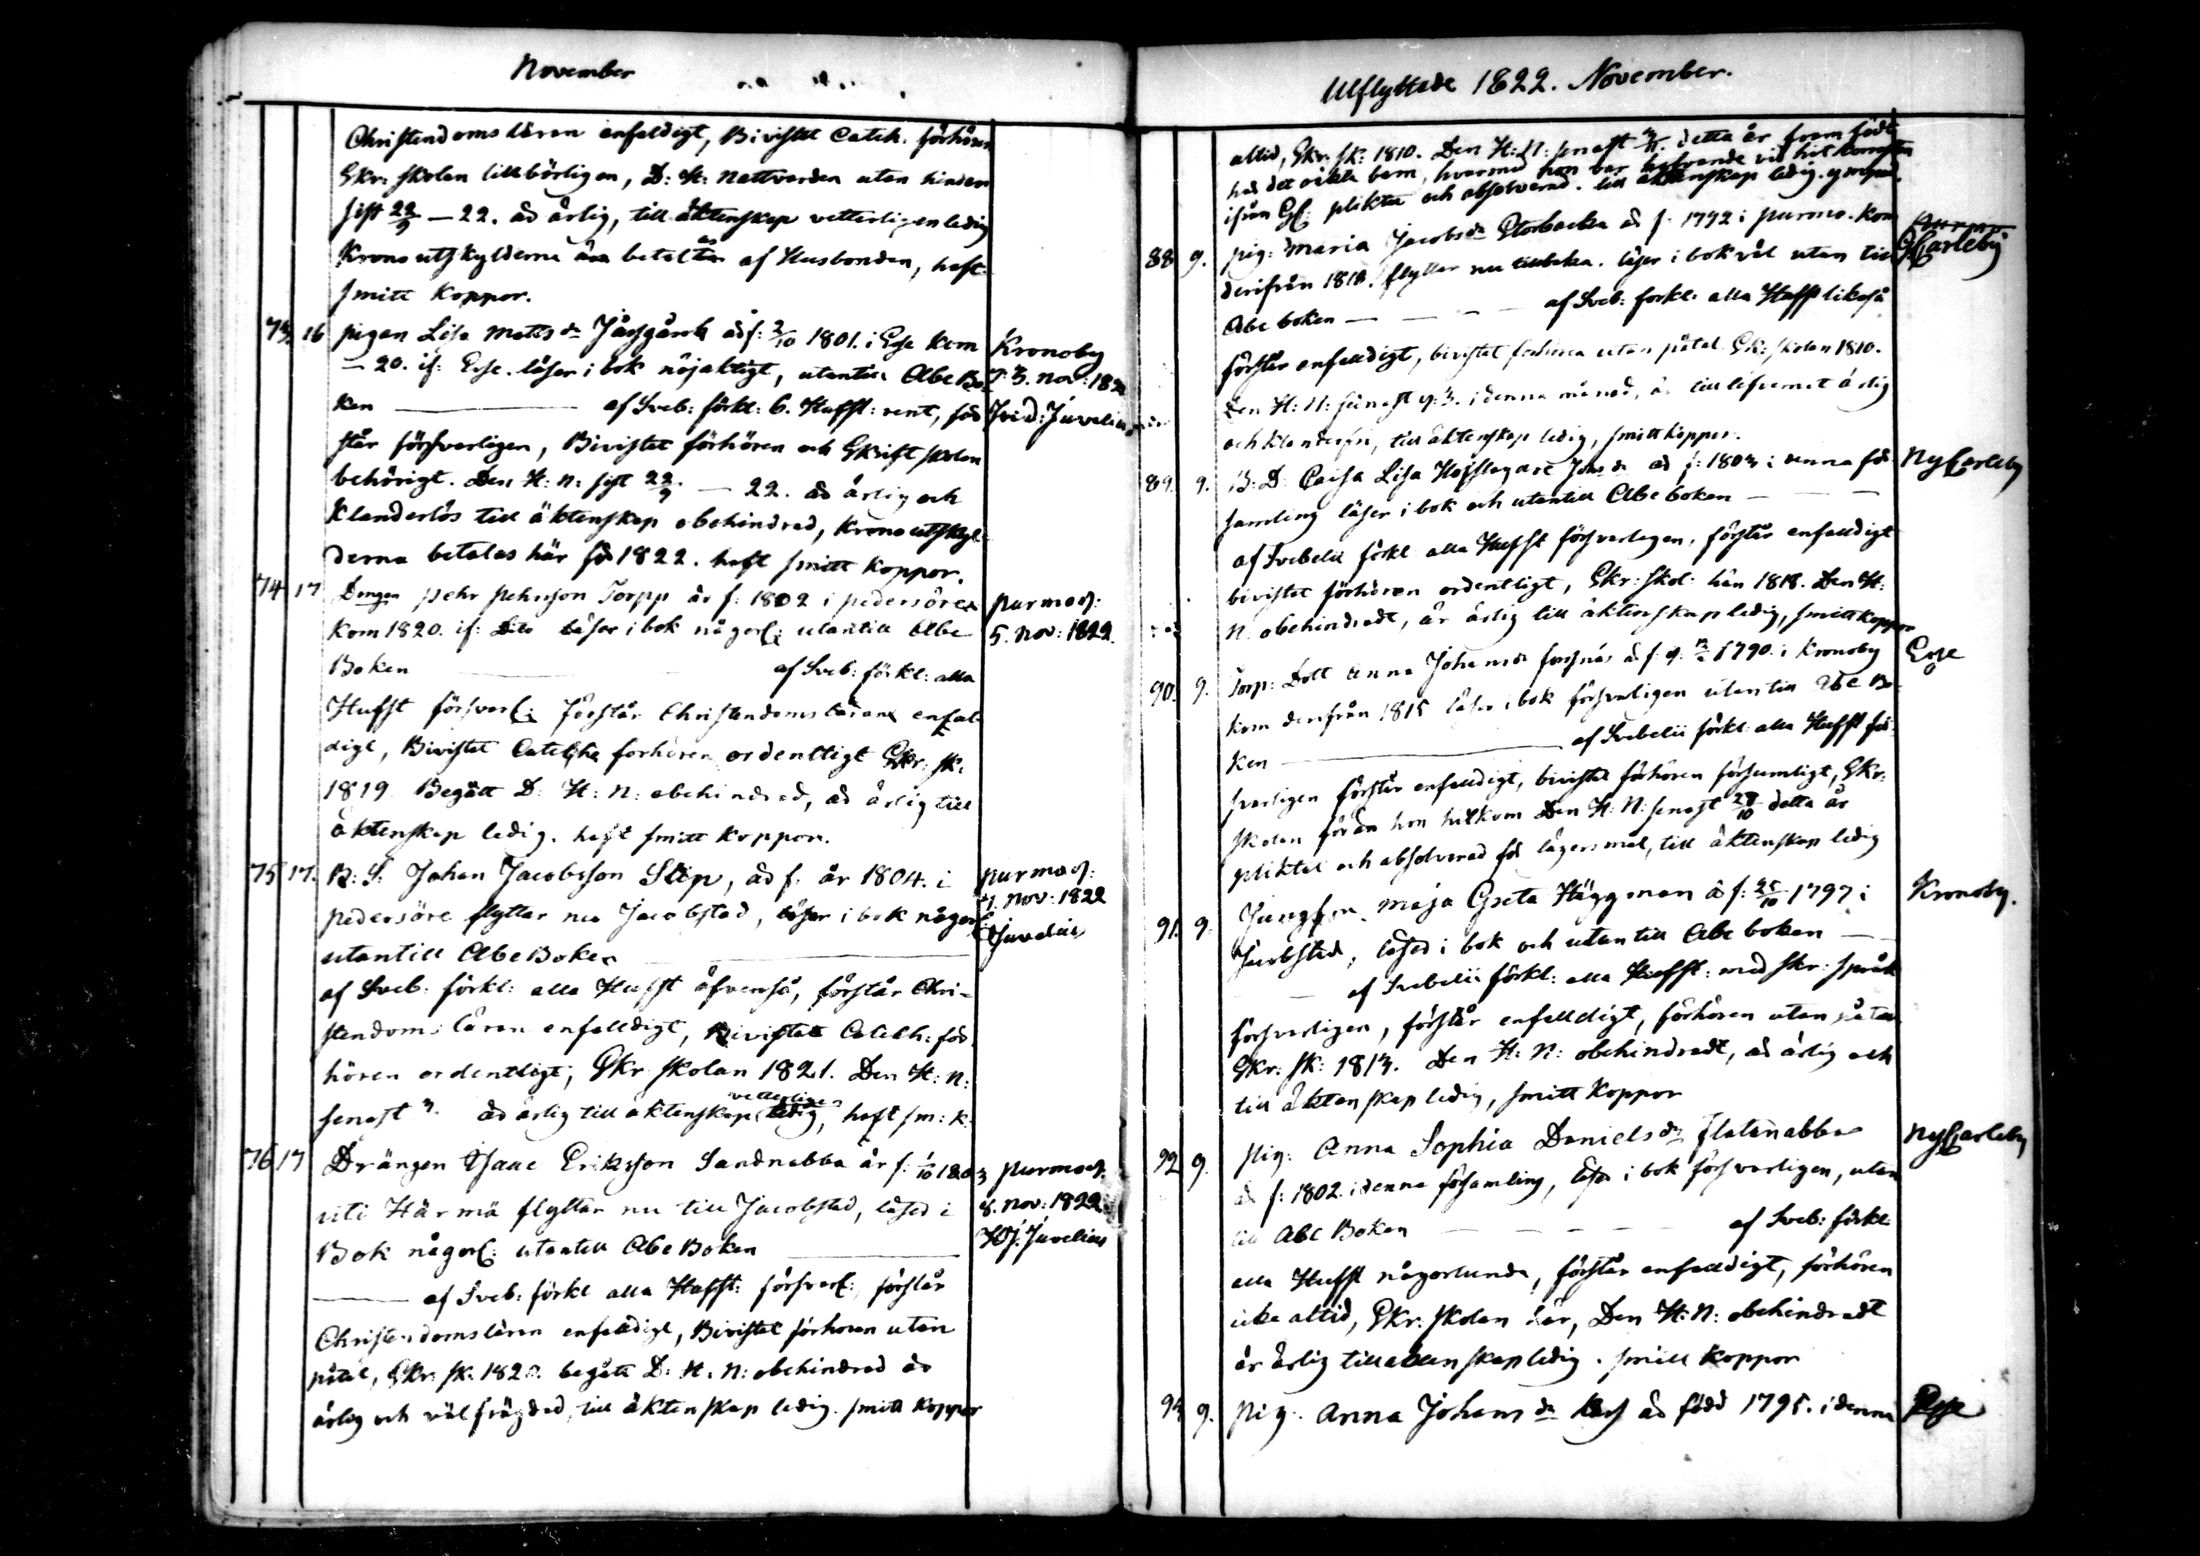 November
Christendomsläran enfaldigt, Bivistat Catech. förhören
Skr: skolan tillbörligen, D: H: Nattvarden utan hinder
sist 22/9 – 22. är ärlig, till äktenskap vetterligen ledig
Kronoutskylderna betalta af Husbonden, haft
smitt koppor.
73. 16 pigan Lisa Matts dr är f: 2/10 1801. i Esse kom
Kronoby
– 20. if: Esse. läser i bok nöjaktigt, utantill Abc Bo-
d. 3. nov: 182
ken — af Sveb: förkl: 6. Hufst: rent, för
Juvelius
står försvarligen, Bivistat förhören och Skriftskolan
behörigt. Den H: N: sist 22/9 — 22. är ärlig och
klanderlös till äktenskap obehindrad, Kronoutskyl-
derna betalas här för 1822. haft smitt koppor.
74 17 Drengen Pehr Pehrsson Torpp är f: 1802 i pedersöre
purmo d:
kom 1820. if: Dito läser i bok någorl: utantill Abc
5. nov: 1822.
Boken — af Sveb: förkl: alla
Hufst försvarl: förstår Christendomsläran enfal-
digt, Bivistat Catech förhören ordentligt Skr: sk:
1819. Begått D: H: N: obehindrad, är ärlig till
äktenskap ledig. haft smitt koppor.
75 17. B: S: Johan Jacobsson Slip, är f: år 1804. i
purmo d:
7. nov: 1822
pedersöre flyttar nu Jacobstad, läser i bok någorl:
Juvelius
utantill Abc Boken —
af Sveb: förkl: alla Hufst äfvenså, förstår Chri-
stendoms läran enfalldigt, Bivistat Catech: för
hören ordentligt, Skr skolan 1821. Den H: N:
senast är ärlig till äktenskap vetterligen ledig, haft sm: k.
76 17 Drängen Isaac Eriksson Sandnabba är f: 1/10 1803
purmo d:
uti Härmä flyttar nu till Jacobstad, läser i
8. nov: 1822
Bok någorl: utantill Abc Boken —
Juvelius
— af Sveb: förkl alla Hufst: försvarl:, förstår
Christendomsläran enfaldigt, Bivistat förhören utan
påtal, Skr: sk: 182 begått D: H: N: obehindrad är
ärlig och välfrägdad, till äktenskap ledig. smitt koppor
Utflyttade 1822. November.
alltid, Skr: sk: 1810. Den H: N: senast detta år framfödt
det oäkta barn, hvarmed hon var hafvande vid hitkomsten
ifrån pliktat och absolverad. till äktenskap ledig.
88 9. pig: Maria Jacobsdr Storbacka är f: 1792 i purmo. kom
GCarleby
derifrån 1818. flyttar nu tillbaka. läser i bok väl utan till
Abc boken — af Sveb: förkl: alla Hufst likaså
förstår enfalldigt, bivistat förhören utan påtal Skr: skolan 1810.
Den H: N: senast d: 3. i denna månad, är till lefvernet ärlig
och klanderfri, till äktenskap ledig, smittkoppor.
89. 9. B: D: Caisa Lisa Hofslagare Johs dr är f: 1803 i denna för
NyCarleby
samling läser i bok och utantill Abc boken —
af Svebelii förkl alla Hufst försvarligen, förstår enfalldigt
bivistat förhören ordentligt, Skr: skol: här 1818. Den H:
N: obehindradt, är ärlig till äktenskap ledig, smittkoppor
90. 9. Torp: Dott Anna Johansdr är f: 1790. i Kronoby
Esse
kom derifrån 1815 läser i bok försvarligen utantill Abc Bo-
ken — af Svebelii förkl alla Hufst för-
svarligen förstår enfalldigt, bivistat förhören försumligt, Skr:
skolan förän hon hitkom Den H: N: senast 28/10 detta år
pliktat och absolverad för lägersmål, till äktenskap ledig
91. 9. Jungfru Maja Greta Häggman är f: 25/10 1797 i
Kronoby.
Jacobstad, läser i bok och utantill Abc boken —
— af Svebelii förkl: alla Hufst: med skr: språk
försvarligen, förstår enfalldigt, förhören utan påtal
Skr: sk: 1813. Den H: N: obehindradt, är ärlig och
till äktenskap ledig, smitt koppor
92 9. pig: Anna Sophia Daniels dr Flatanabba
NyCarleby
är f: 1802. i denna församling, läser i bok försvarligen, utan
till Abc Boken — af Sveb: förkl:
alla Hufst någorlunda, förstår enfalldigt, förhören
icke altid, Skr: skolan här, Den H: N: obehindradt
är ärlig till äktenskap ledig. smitt koppor
93 9. pig: Anna Johans dr är född 1795. i denna
Esse